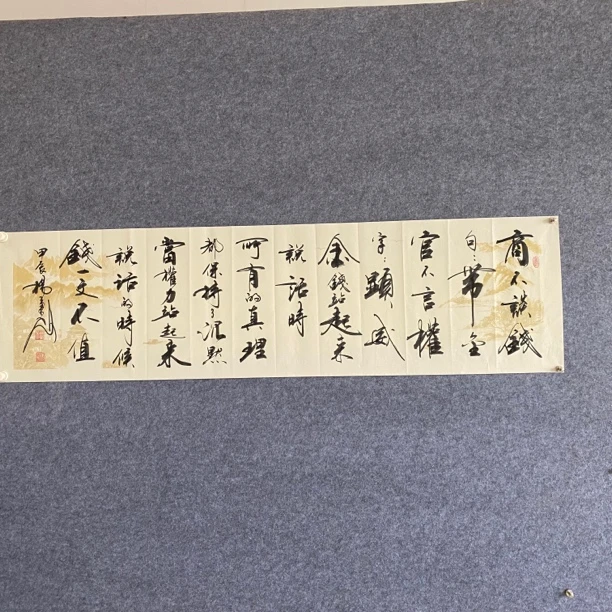 商不談錢
句:帶金
官不言權
字:顯威
金錢站起来
説話時
所有的真理
都保持了沉默
當權力站起来
説話的時候
錢一文不值
甲辰楊